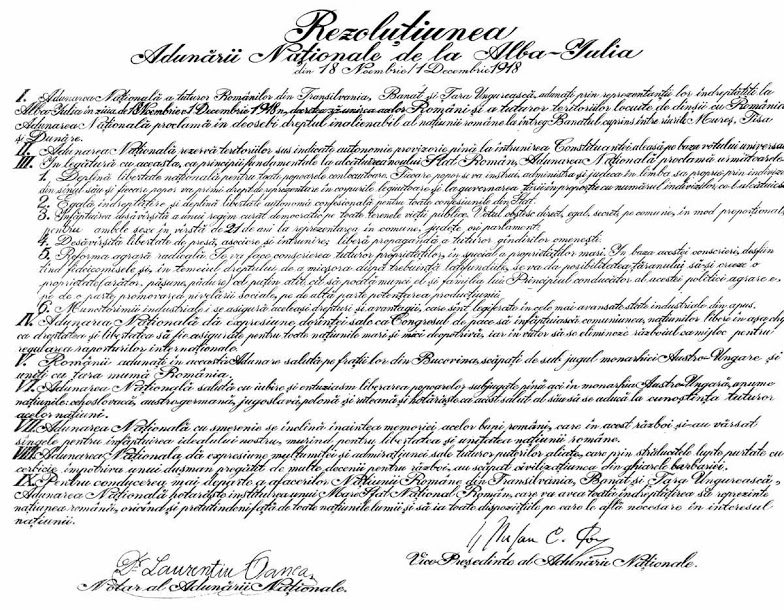 Rezoluțiunea
Adunării Naționale de la Alba-Iulia
din 18 Noembrie/1 Decembrie 1918
I. Adunarea Națională a tuturor Românilor din Transilvania, Banat și Țara Ungurească, adunați prin reprezentanții lor îndreptățiți la
Alba-Iulia în ziua de 18 Noembrie/1 Decembrie 1918, decretează unirea acelor Români și a tuturor teritoriilor locuite de dînșii cu România.
Adunarea Națională proclamă în deosebi dreptul inalienabil al națiunii române la întreg Banatul cuprins între rîurile Mureș, Tisa
și Dunăre.
II. Adunarea Națională rezervă teritoriilor sus indicate autonomie provizorie pînă la întrunirea Constituantei aleasă pe baza votului universal
III. În legătură cu aceasta, ca principii fundamentale la alcătuirea noului Stat Român, Adunarea Națională proclamă următoarele:
1. Deplină libertate națională pentru toate popoarele conlocuitoare. Fiecare popor se va instrui, administra și judeca în limba sa proprie prin indivizi
din sînul său și fiecare popor va primi drept de reprezentare în corpurile legiuitoare și la guvernarea țării în proporție cu numărul indivizilor ce-l alcătuiesc
2. Egală îndreptățire și deplină libertate autonomă confesională pentru toate confesiunile din Stat.
3. Înfăptuirea desăvîrșită a unui regim curat democratic pe toate terenele vieții publice. Votul obștesc, direct, egal, secret, pe comune, în mod proporțional
pentru ambele sexe în vîrstă de 21 de ani la reprezentarea în comune, județe ori parlament.
4. Desăvîrșită libertate de presă, asociere și întrunire; liberă propagandă a tuturor gîndirilor omenești.
5. Reforma agrară radicală. Se va face conscrierea tuturor proprietăților, în special a proprietăților mari. În baza acestei conscrieri, desfiin
țind fideicomisele și, în temeiul dreptului de a micșora după trebuință latifundiile, se va da posibilitatea țăranului să-și creeze o
proprietate (arător, pășune, pădure) cel puțin atît, cît să poată munci el și familia lui. Principiul conducător al acestei politici agrare e,
pe de o parte promovarea nivelării sociale, pe de altă parte potențarea producțiunii.
6. Muncitorimii industriale i se asigură aceleași drepturi și avantagii, care sînt legiferate în cele mai avansate state industriale din apus.
IV. Adunarea Națională dă expresiune dorinței sale ca Congresul de pace să înfăptuiască comuniunea națiunilor libere în așa chip
ca dreptatea și libertatea să fie asigurate pentru toate națiunile mari și mici deopotrivă, iar în viitor să se elimineze războiul ca mijloc pentru
regularea raporturilor internaționale.
V. Românii adunați în această Adunare salută pe frații lor din Bucovina, scăpați de sub jugul monarhiei Austro-Ungare și
uniți cu Țara mumă România.
VI. Adunarea Națională salută cu iubire și entuziasm liberarea popoarelor subjugate pînă aci în monarhia Austro-Ungară, anume
națiunile: cehoslovacă, austrogermană, jugoslavă, polonă și ruteană și hotărăște ca acest salut al său să se aducă la cunoștința tuturor
acelor națiuni.
VII. Adunarea Națională cu smerenie se înclină înaintea memoriei acelor bupi români, care în acest război și-au vărsat
sîngele pentru înfăptuirea idealului nostru, murind pentru libertatea și unitatea națiunii române.
VIII. Adunarea Națională dă expresiune mulțumitei și admirațiunei sale tuturor puterilor aliate, care prin strălucitele lupte purtate cu
cerbicie împotriva unui dușman pregătit de multe decenii pentru război, au scăpat civilizațiunea din ghiarele barbariei.
IX. Pentru conducerea mai departe a afacerilor Națiunii Române din Transilvania, Banat și Țara Ungurească,
Adunarea Națională hotărăște instituirea unui Mare Sfat Național Român, care va avea toată îndreptățirea să reprezinte
națiunea română, oricînd și pretutindeni față de toate națiunile lumii și să ia toate dispozițiile pe care le află necesare în interesul
națiunii.
Dr. Laurențiu Oanea,
Notar al Adunării Naționale.
Ștefan C. Pop
Vice Președinte al Adunării Naționale.